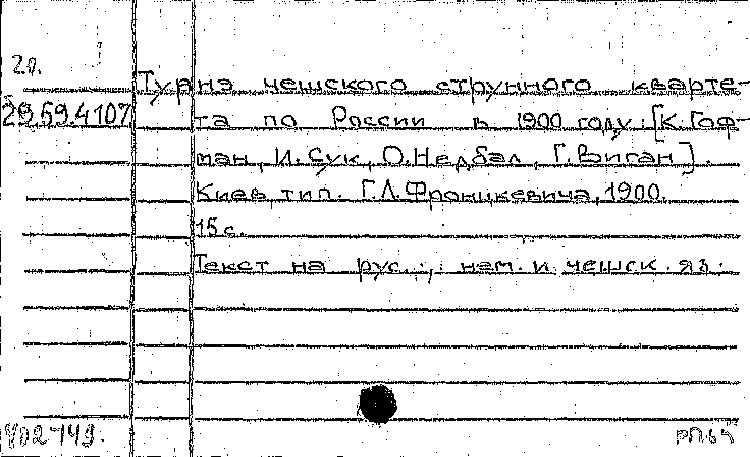 20.
Турнэ чешского струнного кварте-
29.59.4107
та по России в 1900 году. [К. Гоф-
ман, И. Сук, О. Недбал, Г. Виган].
Киев, тип. Г.Л. Фронцкевича, 1900.
15 с.
Текст на рус., нем. и чешск. яз.